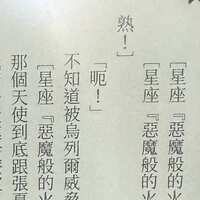 熟！］
［星座『惡魔般的火
［星座『惡魔般的火
「呃！」
不知道被烏列爾威脅
［星座『惡魔般的火
那個天使到底跟張夏